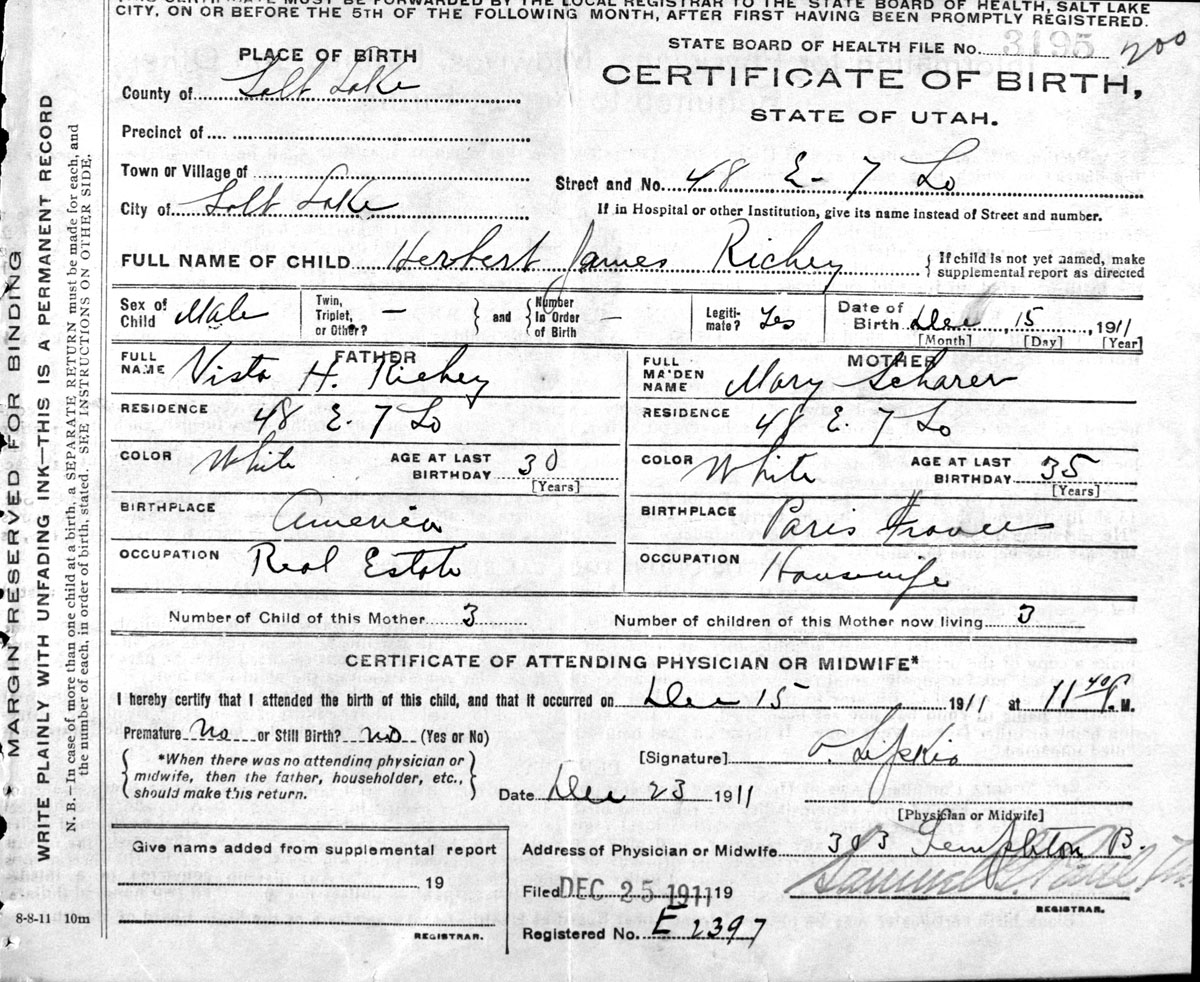 CITY, ON OR BEFORE THE 5TH OF THE FOLLOWING MONTH, AFTER FIRST HAVING BEEN PROMPTLY REGISTERED.
STATE BOARD OF HEALTH FILE No. 3195 200
PLACE OF BIRTH
CERTIFICATE OF BIRTH,
STATE OF UTAH.
County of Salt Lake
Precinct of
Town or Village of
Street and No. 48 E- 7 So
City of Salt Lake
If in Hospital or other Institution, give its name instead of Street and number.
FULL NAME OF CHILD Herbert James Richey { If child is not yet named, make supplemental report as directed
Sex of Child Male Twin, Triplet, or Other? — } and { Number In Order of Birth — Legitimate? Yes Date of Birth Dec, 15, 1911
[Month] [Day] [Year]
FATHER
FULL NAME Vista H. Richey
RESIDENCE 48 E. 7 So
COLOR White AGE AT LAST BIRTHDAY 30
[Years]
BIRTHPLACE America
OCCUPATION Real Estate
MOTHER
FULL MAIDEN NAME Mary Scharer
RESIDENCE 48 E. 7 So
COLOR White AGE AT LAST BIRTHDAY 35
[Years]
BIRTHPLACE Paris France
OCCUPATION Housewife
Number of Child of this Mother 3 Number of children of this Mother now living 3
CERTIFICATE OF ATTENDING PHYSICIAN OR MIDWIFE*
I hereby certify that I attended the birth of this child, and that it occurred on Dec 15 1911 at 11 40 P. M.
Premature No or Still Birth? No (Yes or No)
{ *When there was no attending physician or
midwife, then the father, householder, etc.,
should make this return. }
[Signature]
Date Dec 23 1911
[Physician or Midwife]
Address of Physician or Midwife 303 Templeton B.
Filed DEC 25 1911 19
REGISTRAR.
Registered No. E 2397
Give name added from supplemental report
19
REGISTRAR.
8-8-11 10m
MARGIN RESERVED FOR BINDING
WRITE PLAINLY WITH UNFADING INK—THIS IS A PERMANENT RECORD
N. B. In case of more than one child at a birth, a SEPARATE RETURN must be made for each, and
the number of each, in order of birth, stated. SEE INSTRUCTIONS ON OTHER SIDE.